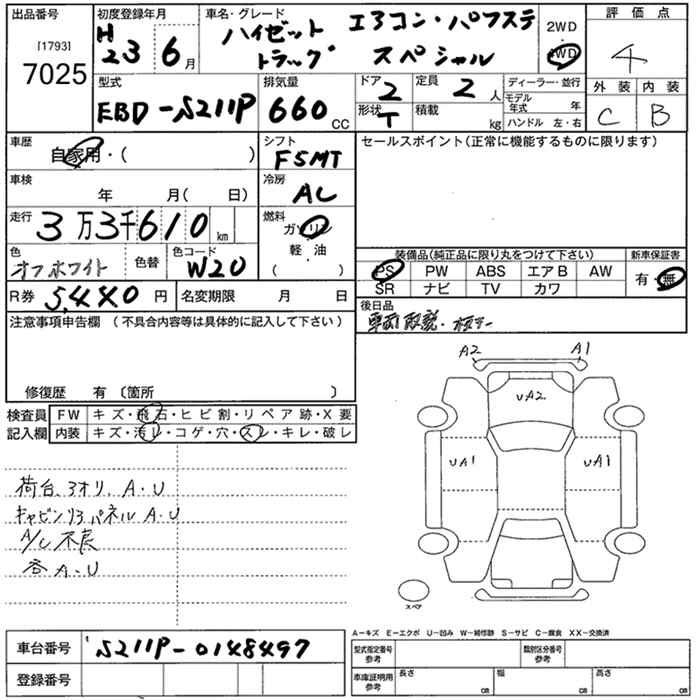 出品番号 初度登録年月 車名・グレード 評価点
[1793] H ハイゼット エアコン・パワステ 2WD
7025 23 6月 トラック スペシャル 4WD 4
型式 排気量 ドア 2 定員 2人 ディーラー・並行 外装 内装
EBD-S211P 660CC 形状 T 積載 kg モデル年式 年 C B
ハンドル 左・右
車歴 自家用・( ) シフト セールスポイント(正常に機能するものに限ります)
F5MT
車検 年 月( 日) 冷房 AC
走行 3万3千610km 燃料 ガソリン
色 色替 色コード 軽・油 装備品(純正品に限り丸をつけて下さい) 新車保証書
オフホワイト W20 ( ・ ) PS PW ABS エアB AW 有・無
R券 5,440円 名変期限 月 日 SR ナビ TV カワ
注意事項申告欄 (不具合内容等は具体的に記入して下さい) 後日品
車両取説・
修復歴 有 〔箇所 〕 A2 A1
検査員 FW キズ・飛石・ヒビ割・リペア跡・X要 UA2
記入欄 内装 キズ・汚レ・コゲ・穴・スレ・キレ・破レ
UA1 UA1
荷台、アオリ、A・U
キャビンリアパネルA・U
A/C不良
各A・U
スペア
A-キズ E-エクボ U-凹み W-補修跡 S-サビ C-腐食 XX-交換済
車台番号 S211P-0148497 型式指定番号 参考 類別区分番号 参考
登録番号 車庫証明用 参考 長さ cm 幅 cm 高さ cm